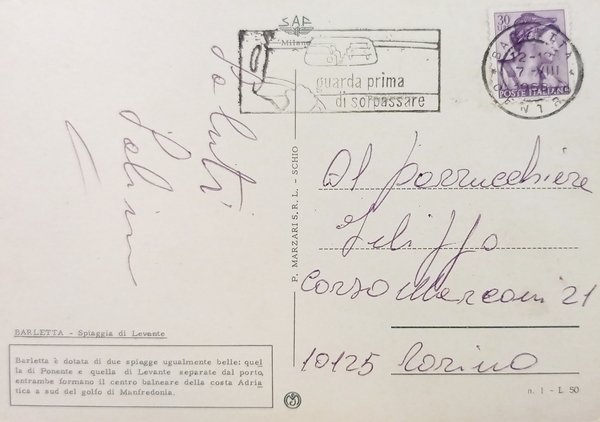 SAR
Milano
guarda prima
di sorpassare
30
BARLETTA
POSTE ITALIANE
Saluti
P. MARZARI S.R.L. - SCHIO
Al parrucchiere
Filippo
Corso Marconi 21
10125 Torino
BARLETTA - Spiaggia di Levante
Barletta è dotata di due spiagge ugualmente belle: quel
la di Ponente e quella di Levante separate dal porto,
entrambe formano il centro balneare della costa Adria
tica a sud del golfo di Manfredonia.
n. 1 - L. 50